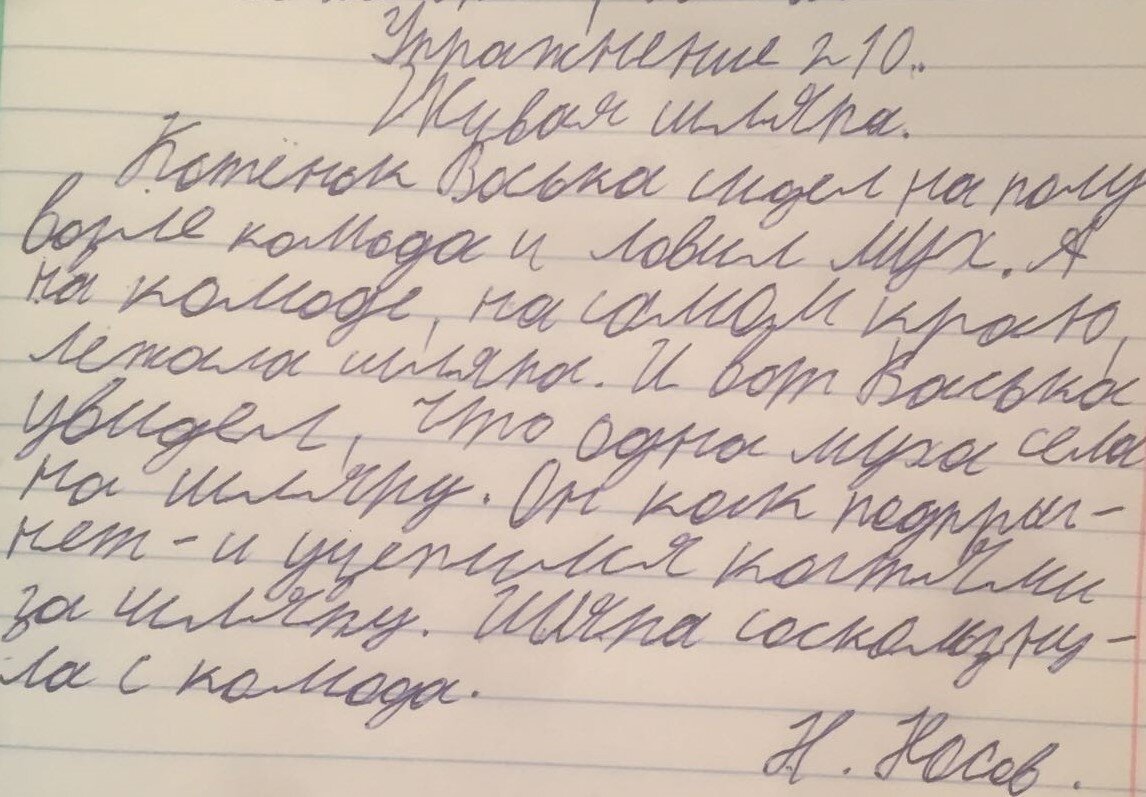 Упражнение 210.
Живая шляпа.
Котёнок Васька сидел на полу
возле комода и ловил мух. А
на комоде, на самом краю,
лежала шляпа. И вот Васька
увидел, что одна муха села
на шляпу. Он как подпрыг-
нет - и уцепился когтями
за шляпу. Шляпа соскользну-
ла с комода.
Н. Носов.